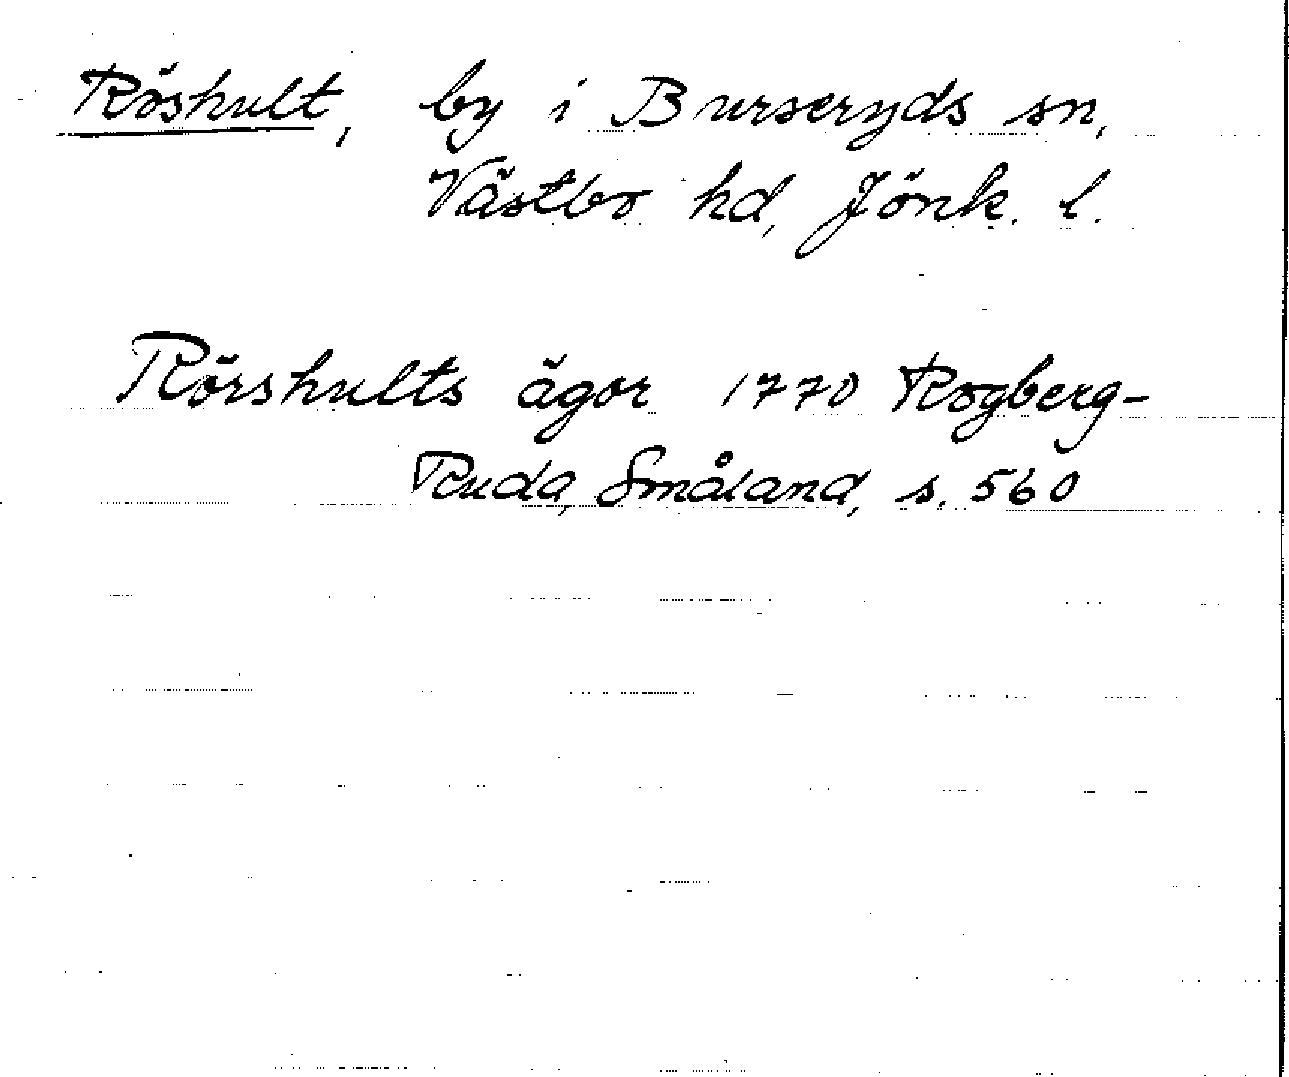 Röshult, by i Burseryds sn,
Västbo hd, Jönk. l.
Rörshults ägor 1770 Rogberg-
Ruda, Småland, s. 560